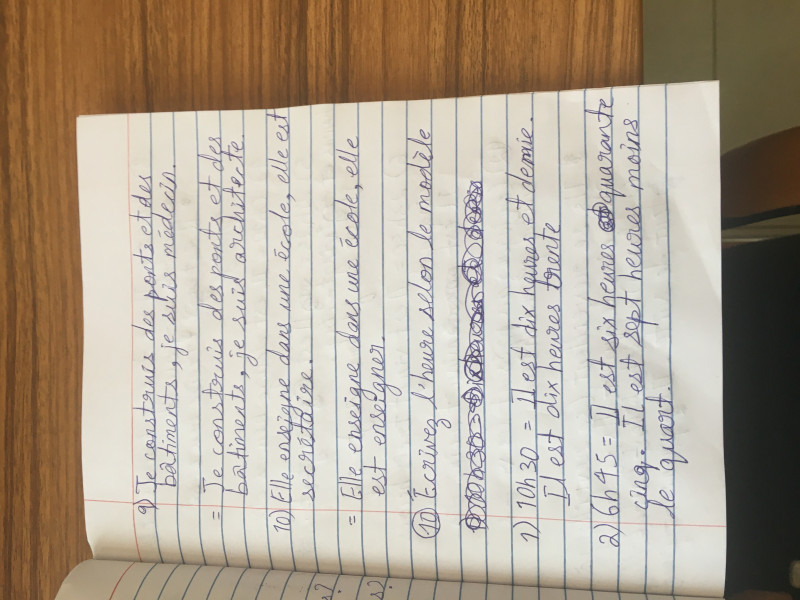 9) Je construis des ponts et des
bâtiments, je suis médecin.
= Je construis des ponts et des
bâtiments, je suis architecte.
10) Elle enseigne dans une école, elle est
secrétaire.
= Elle enseigne dans une école, elle
est enseigner.
10 Écrivez l'heure selon le modèle
1) 10h30 = Il est dix heures et demie.
Il est dix heures trente
2) 6h45 = Il est six heures quarante
cinq. Il est sept heures moins
le quart.